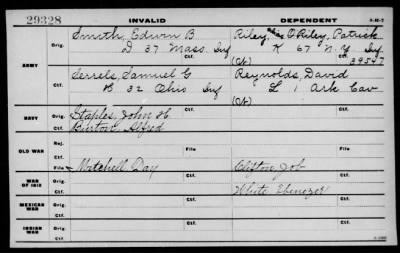 29328
INVALID
DEPENDENT
3-312
ARMY
Orig.
Smith, Edwin B
D 37 Mass. Inf
Riley, alias O'Riley, Patrick
K 67 N.Y. Inf
(Ctf.)
39547
Ctf.
Serrels, Samuel G
B 32 Ohio Inf
Reynolds, David
L 1 Ark Cav
(Ctf.)
NAVY
Orig.
Staples, John H.
Ctf.
Burton, Alfred
OLD WAR
Rej.
Ctf.
File
File
File
Mitchell, Day
Clifton, Job
WAR OF 1812
Orig.
Ctf.
White, Ebenezer
MEXICAN WAR
Orig.
Ctf.
INDIAN WAR
Orig.
Ctf.